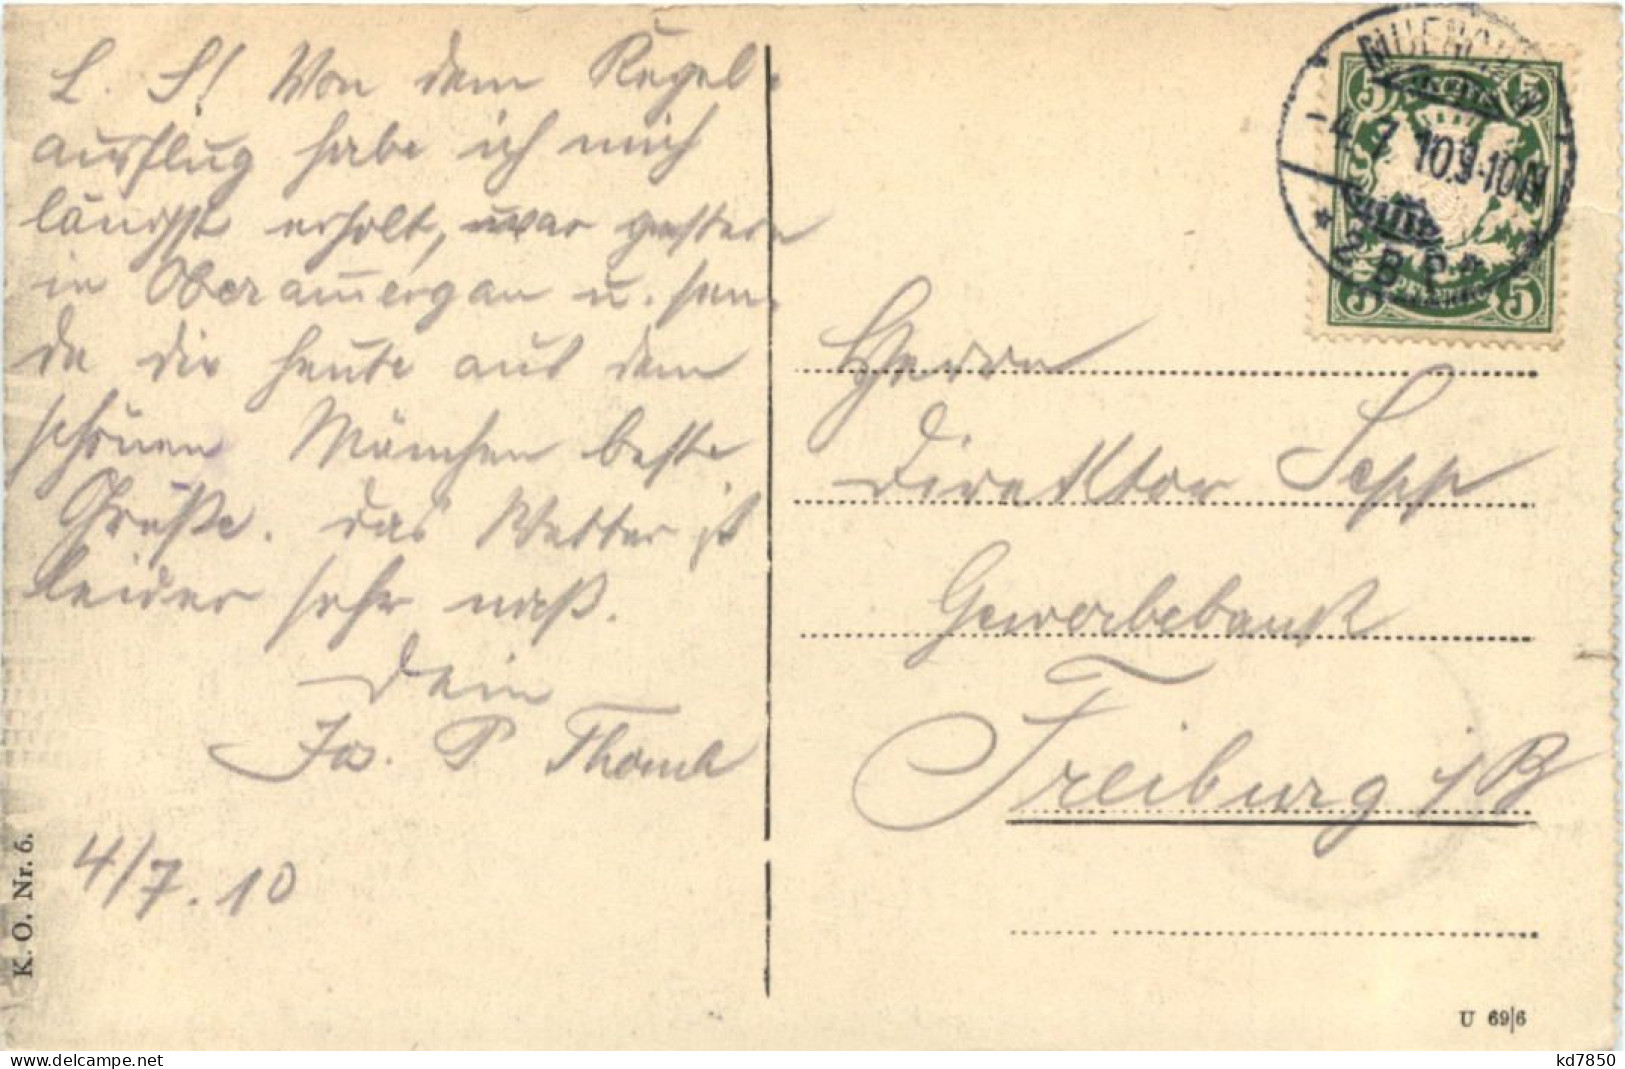 L. S! Von dem Kegel-
ausflug habe ich mich
längst erholt, war gestern
in Oberammergau u. sen-
de dir heute aus dem
schönen München beste
Grüße. Das Wetter ist
leider sehr naß.
Dein
Jos. P
4/7.10
K. O. Nr. 6.
5 5
4. 7. 10. 9-10 N
* 2 B. P. *
5 5
Herrn
Direktor Sepp
Gewerbebank
Freiburg i/B
U 69/6
kd7850